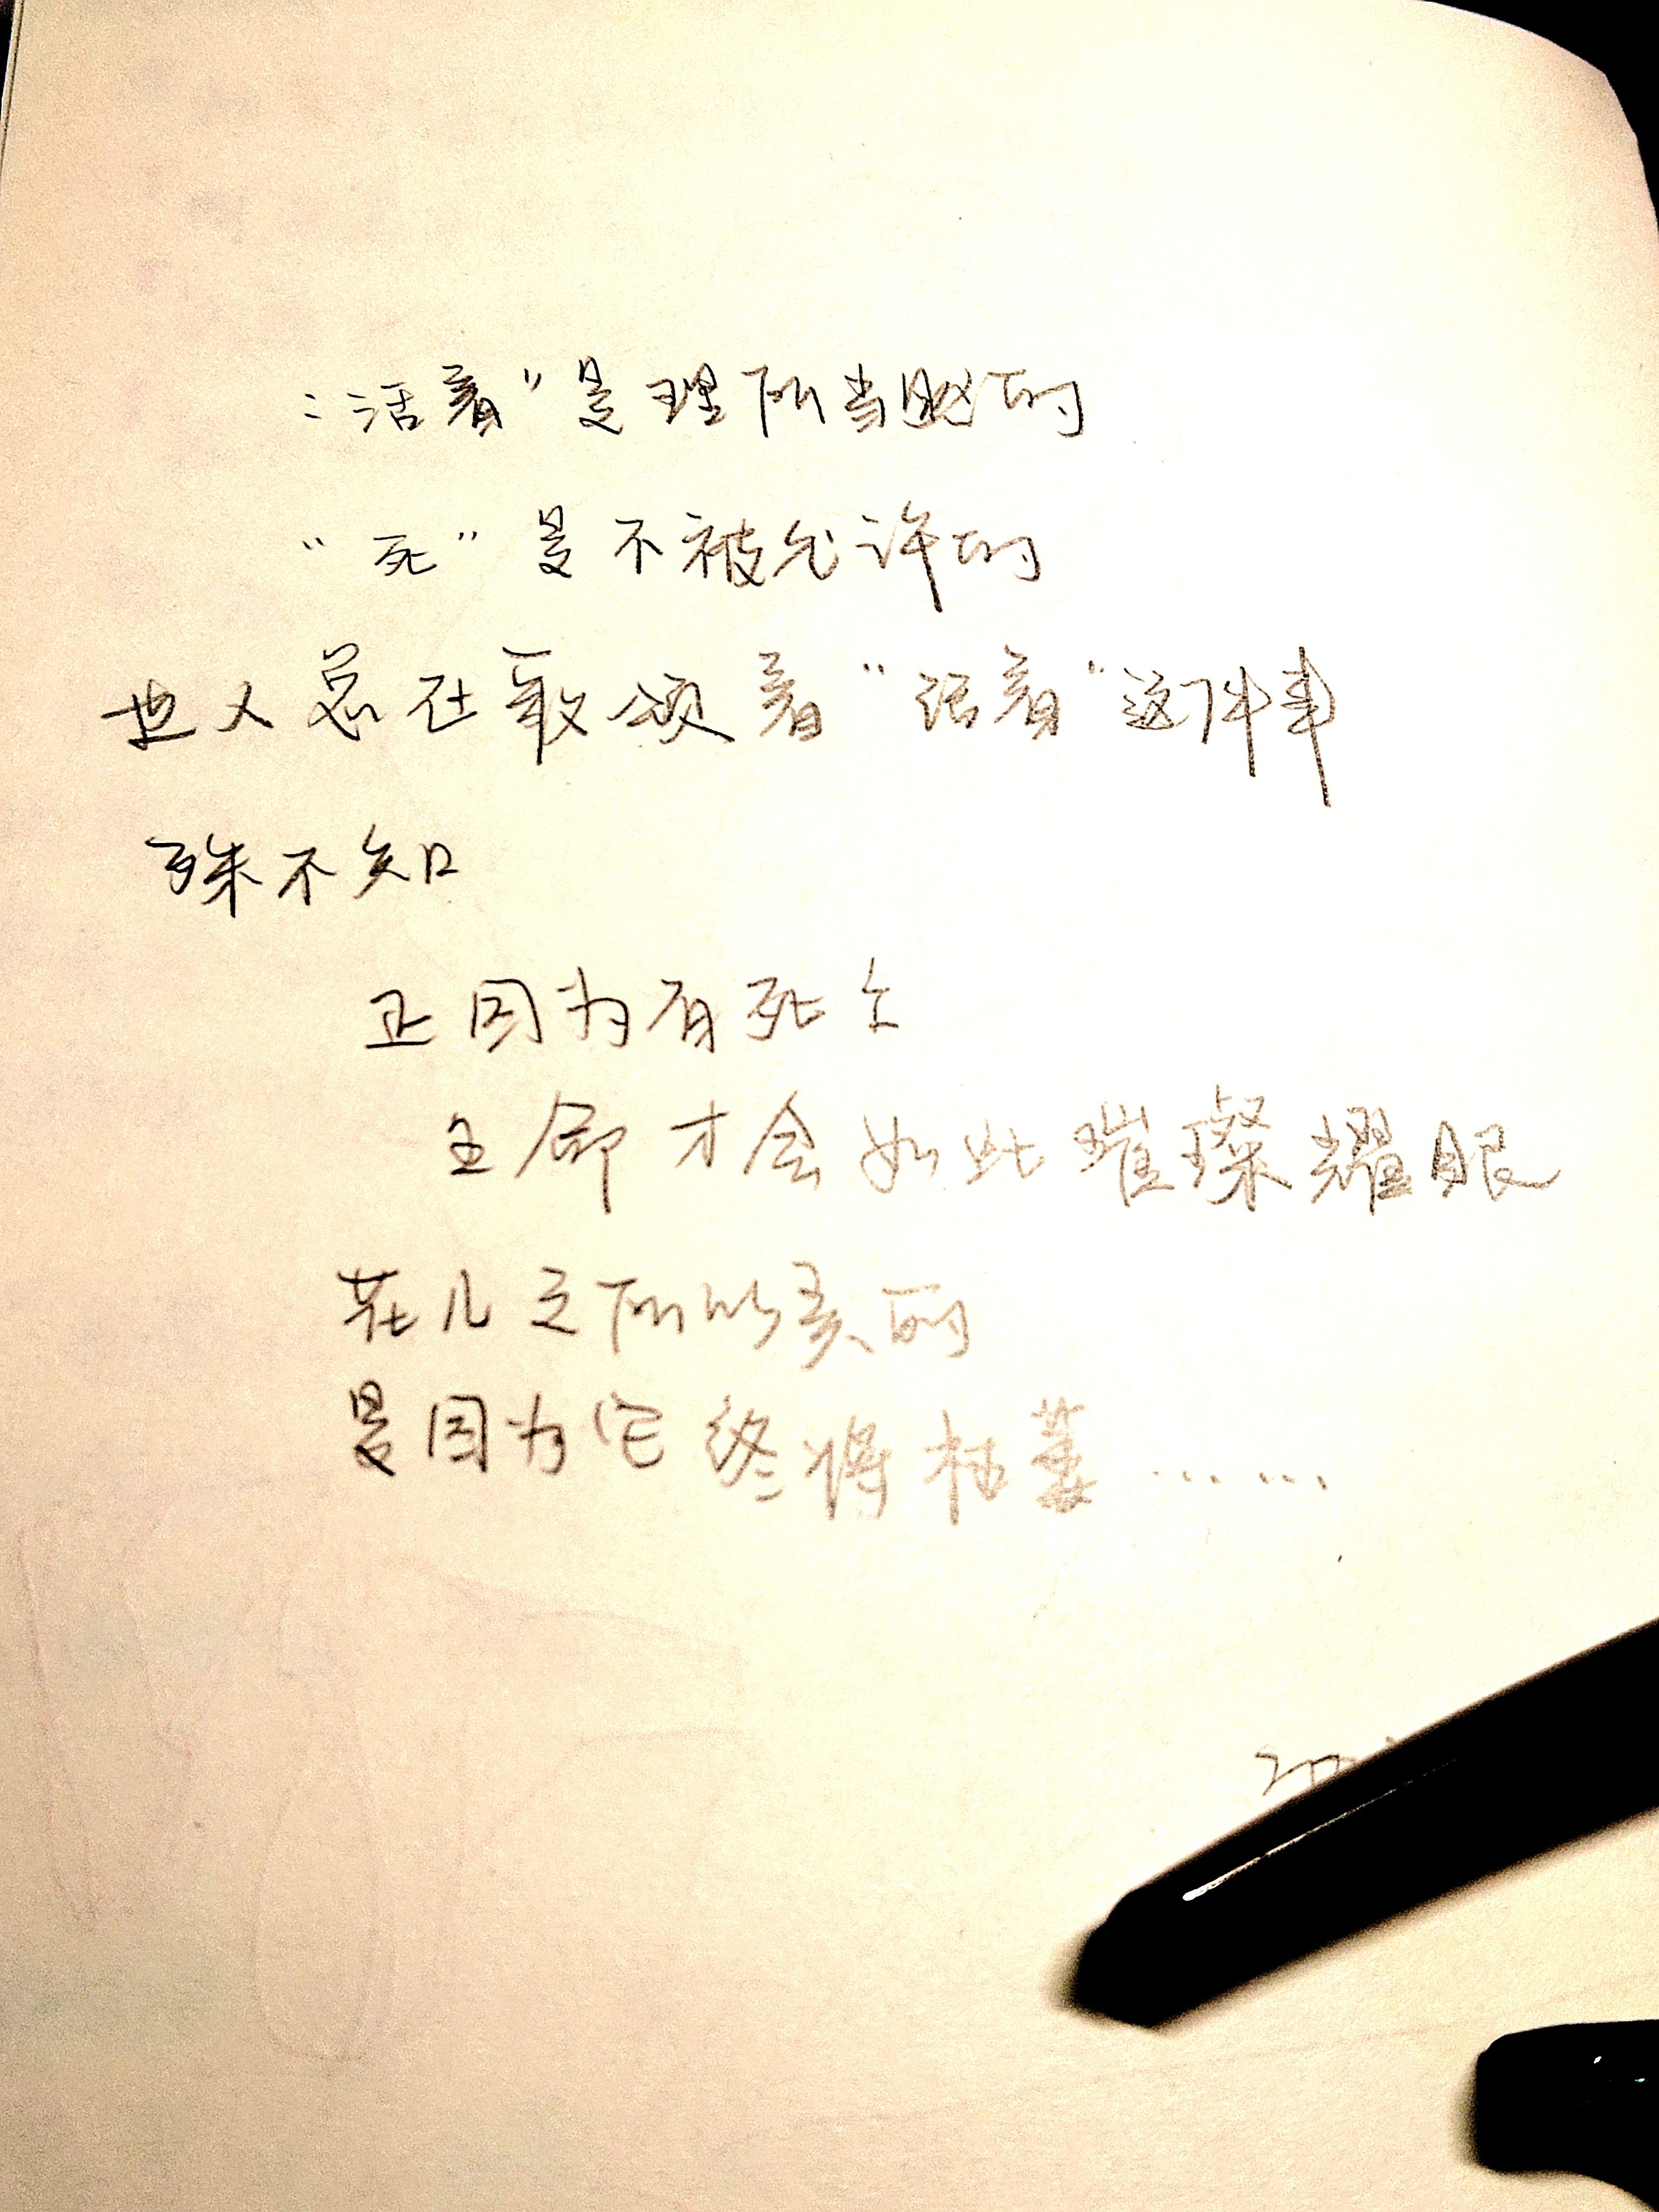 "活着"是理所当然的
"死"是不被允许的
世人总在歌颂着"活着"这件事
殊不知
正因为有死亡
生命才会如此璀璨耀眼
花儿之所以美丽
是因为它终将枯萎……